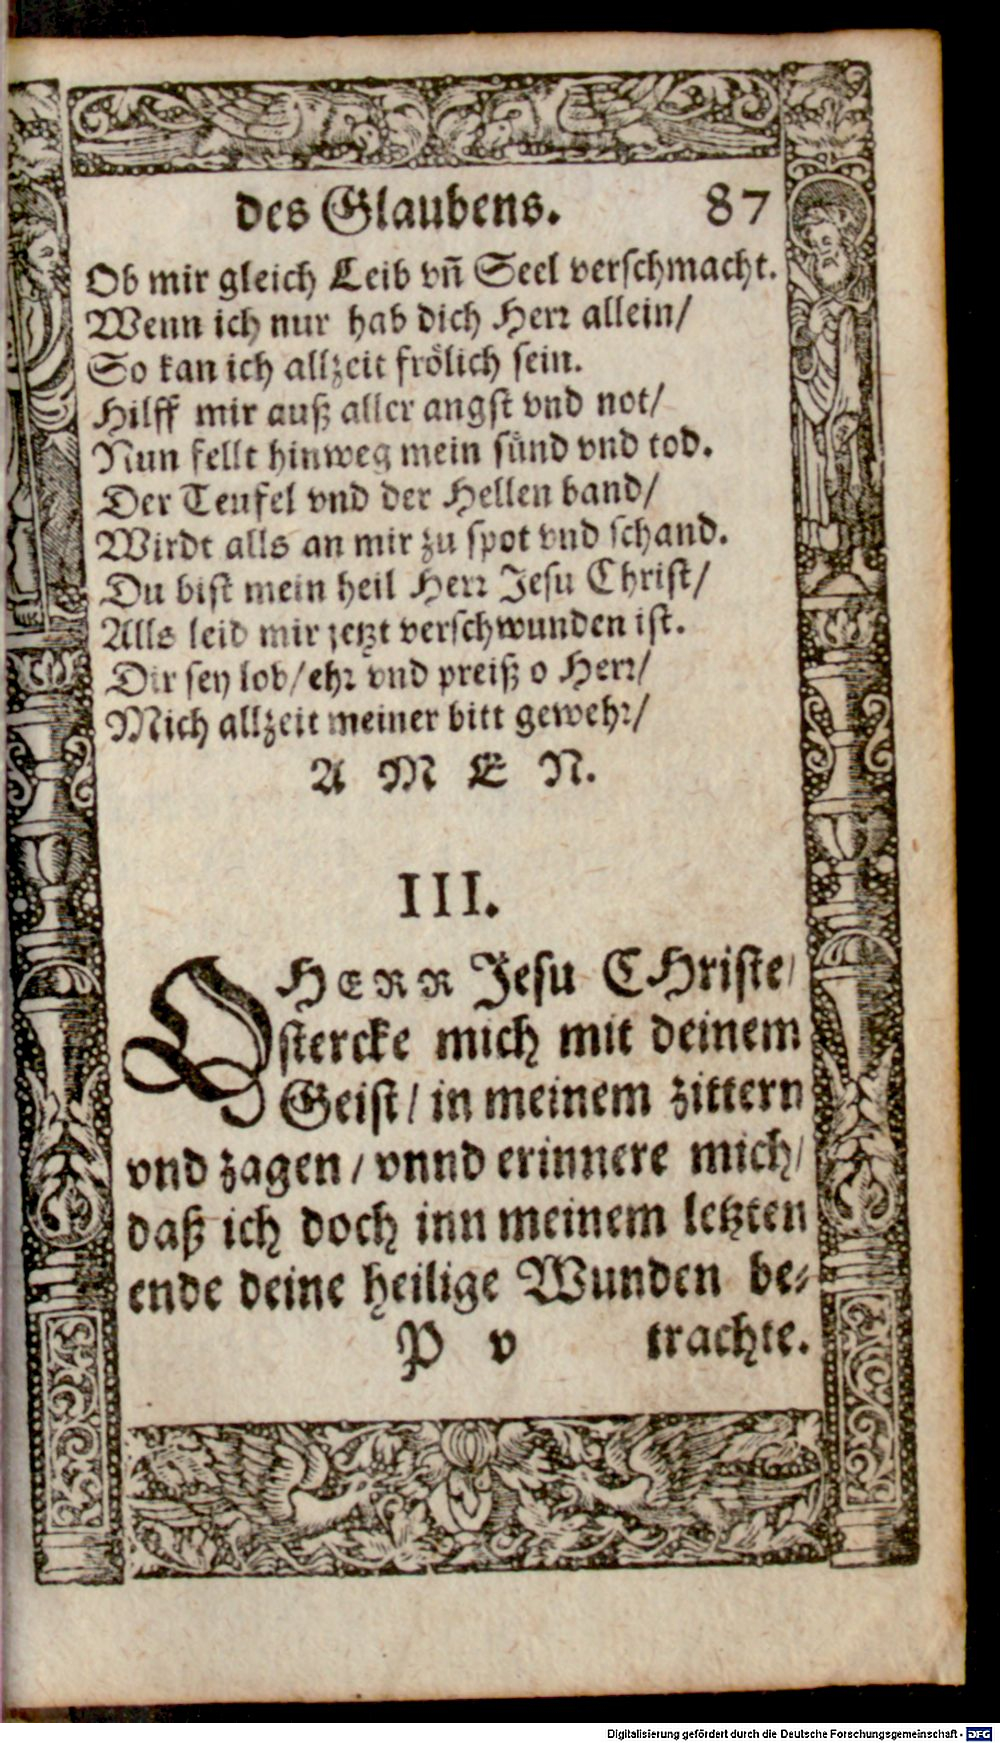 des Glaubens. 87
Ob mir gleich Leib vñ Seel verschmacht.
Wenn ich nur hab dich Herr allein/
So kan ich allzeit frölich sein.
Hilff mir auß aller angst vnd not/
Nun fellt hinweg mein sünd vnd tod.
Der Teufel vnd der Hellen band/
Wirdt alls an mir zu spot vnd schand.
Du bist mein heil Herr Jesu Christ/
Alls leid mir jetzt verschwunden ist.
Dir sey lob/ ehr vnd preiß o Herr/
Mich allzeit meiner bitt gewehr/
A M E N.
III.
O HERR Jesu CHriste/
stercke mich mit deinem
Geist/ in meinem zittern
vnd zagen/ vnnd erinnere mich/
daß ich doch inn meinem letzten
ende deine heilige Wunden be-
P v trachte.
Digitalisierung gefördert durch die Deutsche Forschungsgemeinschaft - DFG